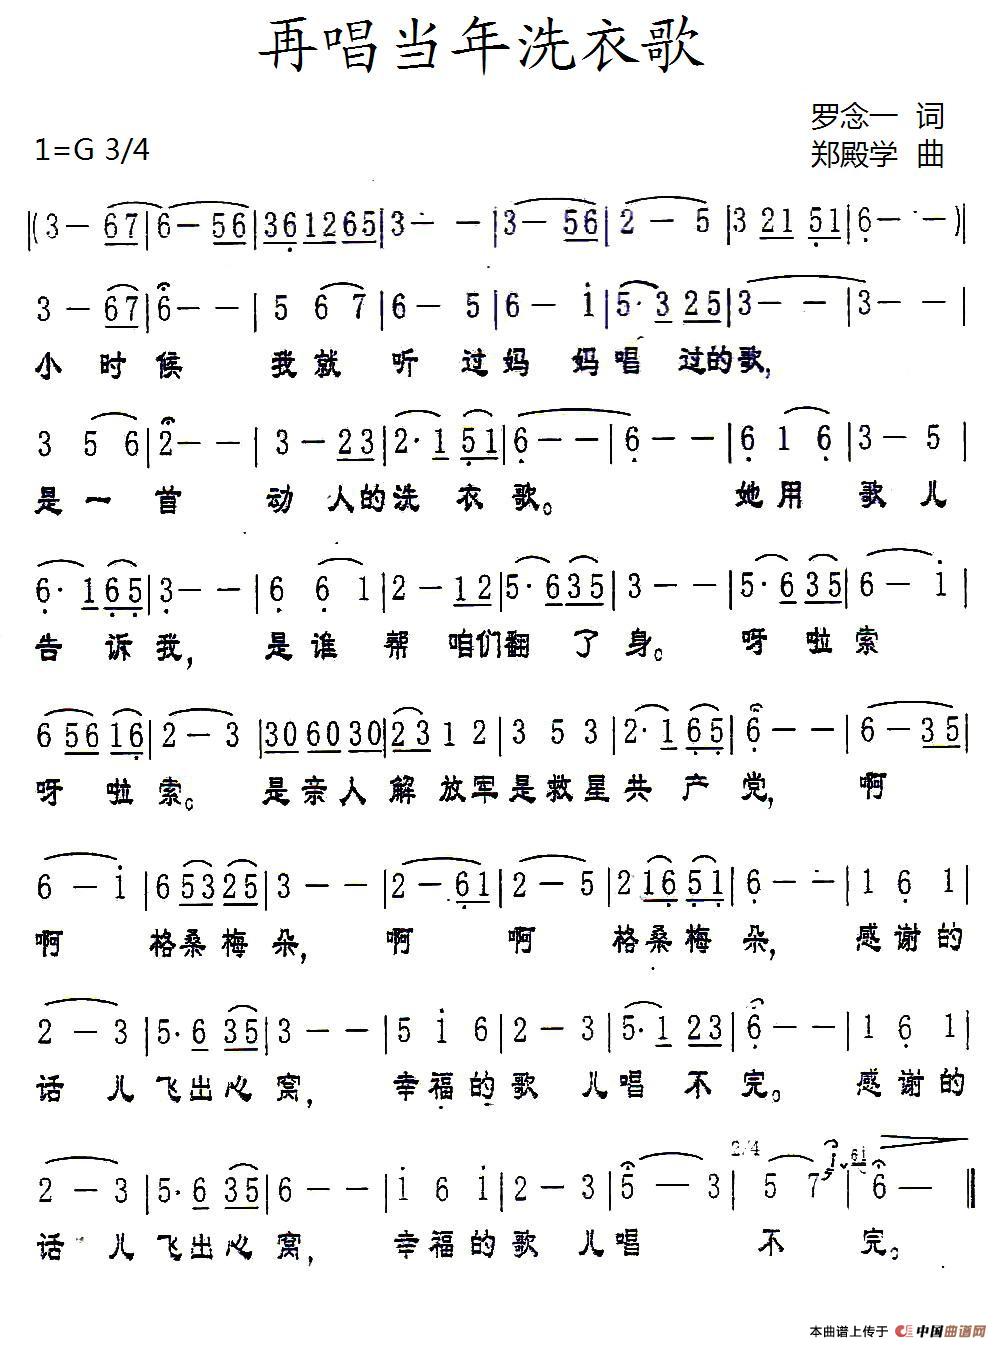 再唱当年洗衣歌
罗念一 词
1=G 3/4
郑殿学 曲
‖(3— 6 7|6— 5 6|3 6 1 2 6 5|3— —|3— 5 6|2— 5|3 2 1 5 1|6— —)|
3— 6 7|6— —|5 6 7|6— 5|6— i|5· 3 2 5|3— —|3— —|
小 时 候 我 就 听 过 妈 妈 唱 过 的 歌,
3 5 6|2— —|3— 2 3|2· 1 5 1|6— —|6— —|6 1 6|3— 5|
是 一 首 动 人 的 洗 衣 歌。 她 用 歌 儿
6· 1 6 5|3— —|6 6 1|2— 1 2|5· 6 3 5|3— —|5· 6 3 5|6— i|
告 诉 我, 是 谁 帮 咱们 翻 了 身。 呀 啦 索
6 5 6 1 6|2— 3|3 0 6 0 3 0|2 3 1 2|3 5 3|2· 1 6 5|6— —|6— 3 5|
呀 啦 索。 是 亲 人 解 放 军 是 救 星 共 产 党, 啊
6— i|6 5 3 2 5|3— —|2— 6 1|2— 5|2 1 6 5 1|6— —|1 6 1|
啊 格 桑 梅 朵, 啊 啊 格 桑 梅 朵, 感 谢 的
2— 3|5· 6 3 5|3— —|5 i 6|2— 3|5· 1 2 3|6— —|1 6 1|
话 儿 飞 出 心 窝, 幸 福 的 歌 儿 唱 不 完。 感 谢 的
2— 3|5· 6 3 5|6— —|i 6 i|2— 3|5— 3|2/4 5 7|6—‖
话 儿 飞 出 心 窝, 幸 福 的 歌 儿 唱 不 完。
本曲谱上传于 中国曲谱网